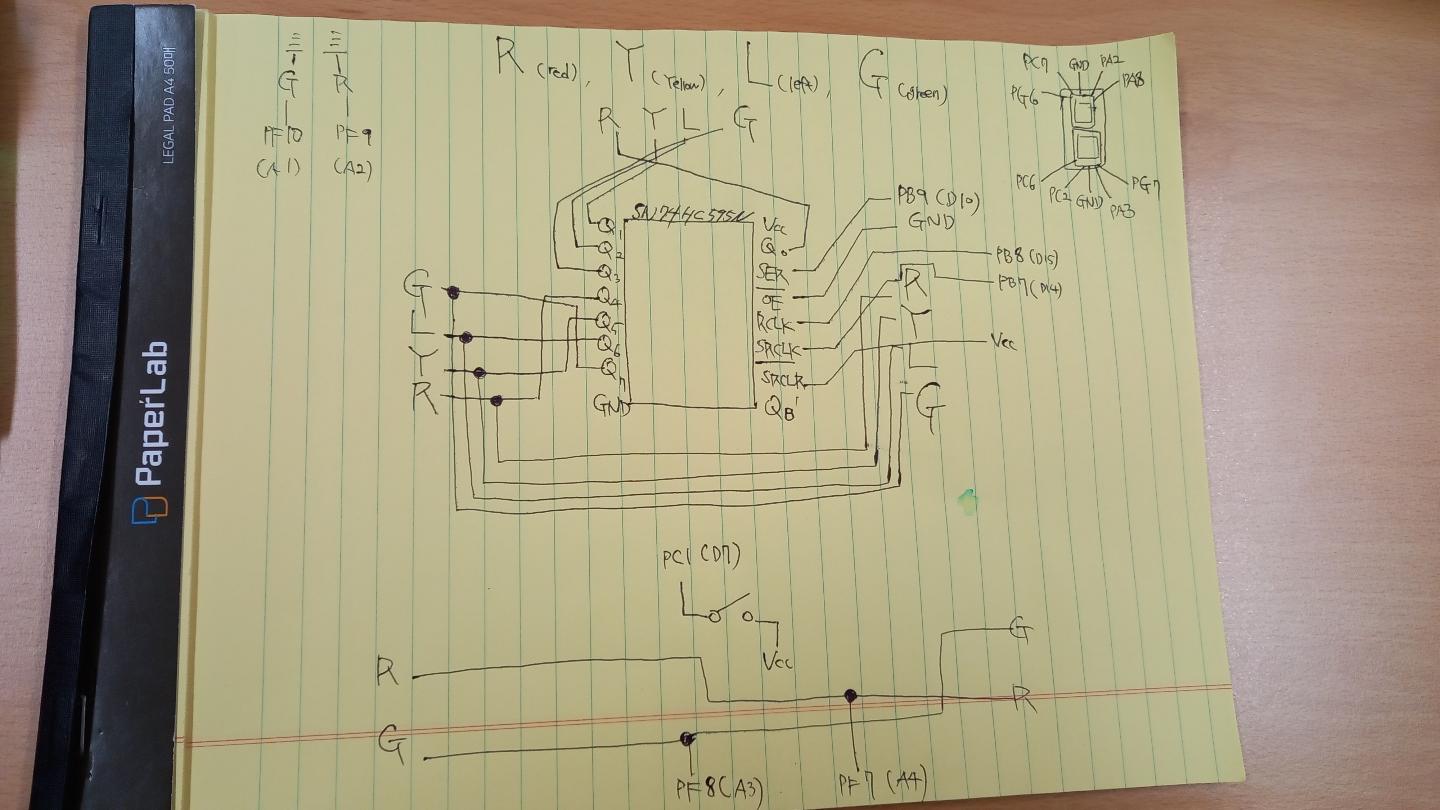 G R
PF10 PF9
(A1) (A2)
R (red), Y (Yellow), L (left), G (green)
R Y L G
PC7 GND PA2
PG6 PA8
PC6 PG7
PC2 GND PA3
SN74HC595N
Q1 Vcc
Q2 Q0
Q3 SER
Q4 OE
Q5 RCLK
Q6 SRCLK
Q7 SRCLR
GND QB'
PB9 (D10)
GND
PB8 (D15)
PB7 (D14)
Vcc
G
L
Y
R
R
Y
L
G
PC1 (D7)
Vcc
R G
G R
PF8 (A3) PF7 (A4)
PaperLab
LEGAL PAD A4 50매